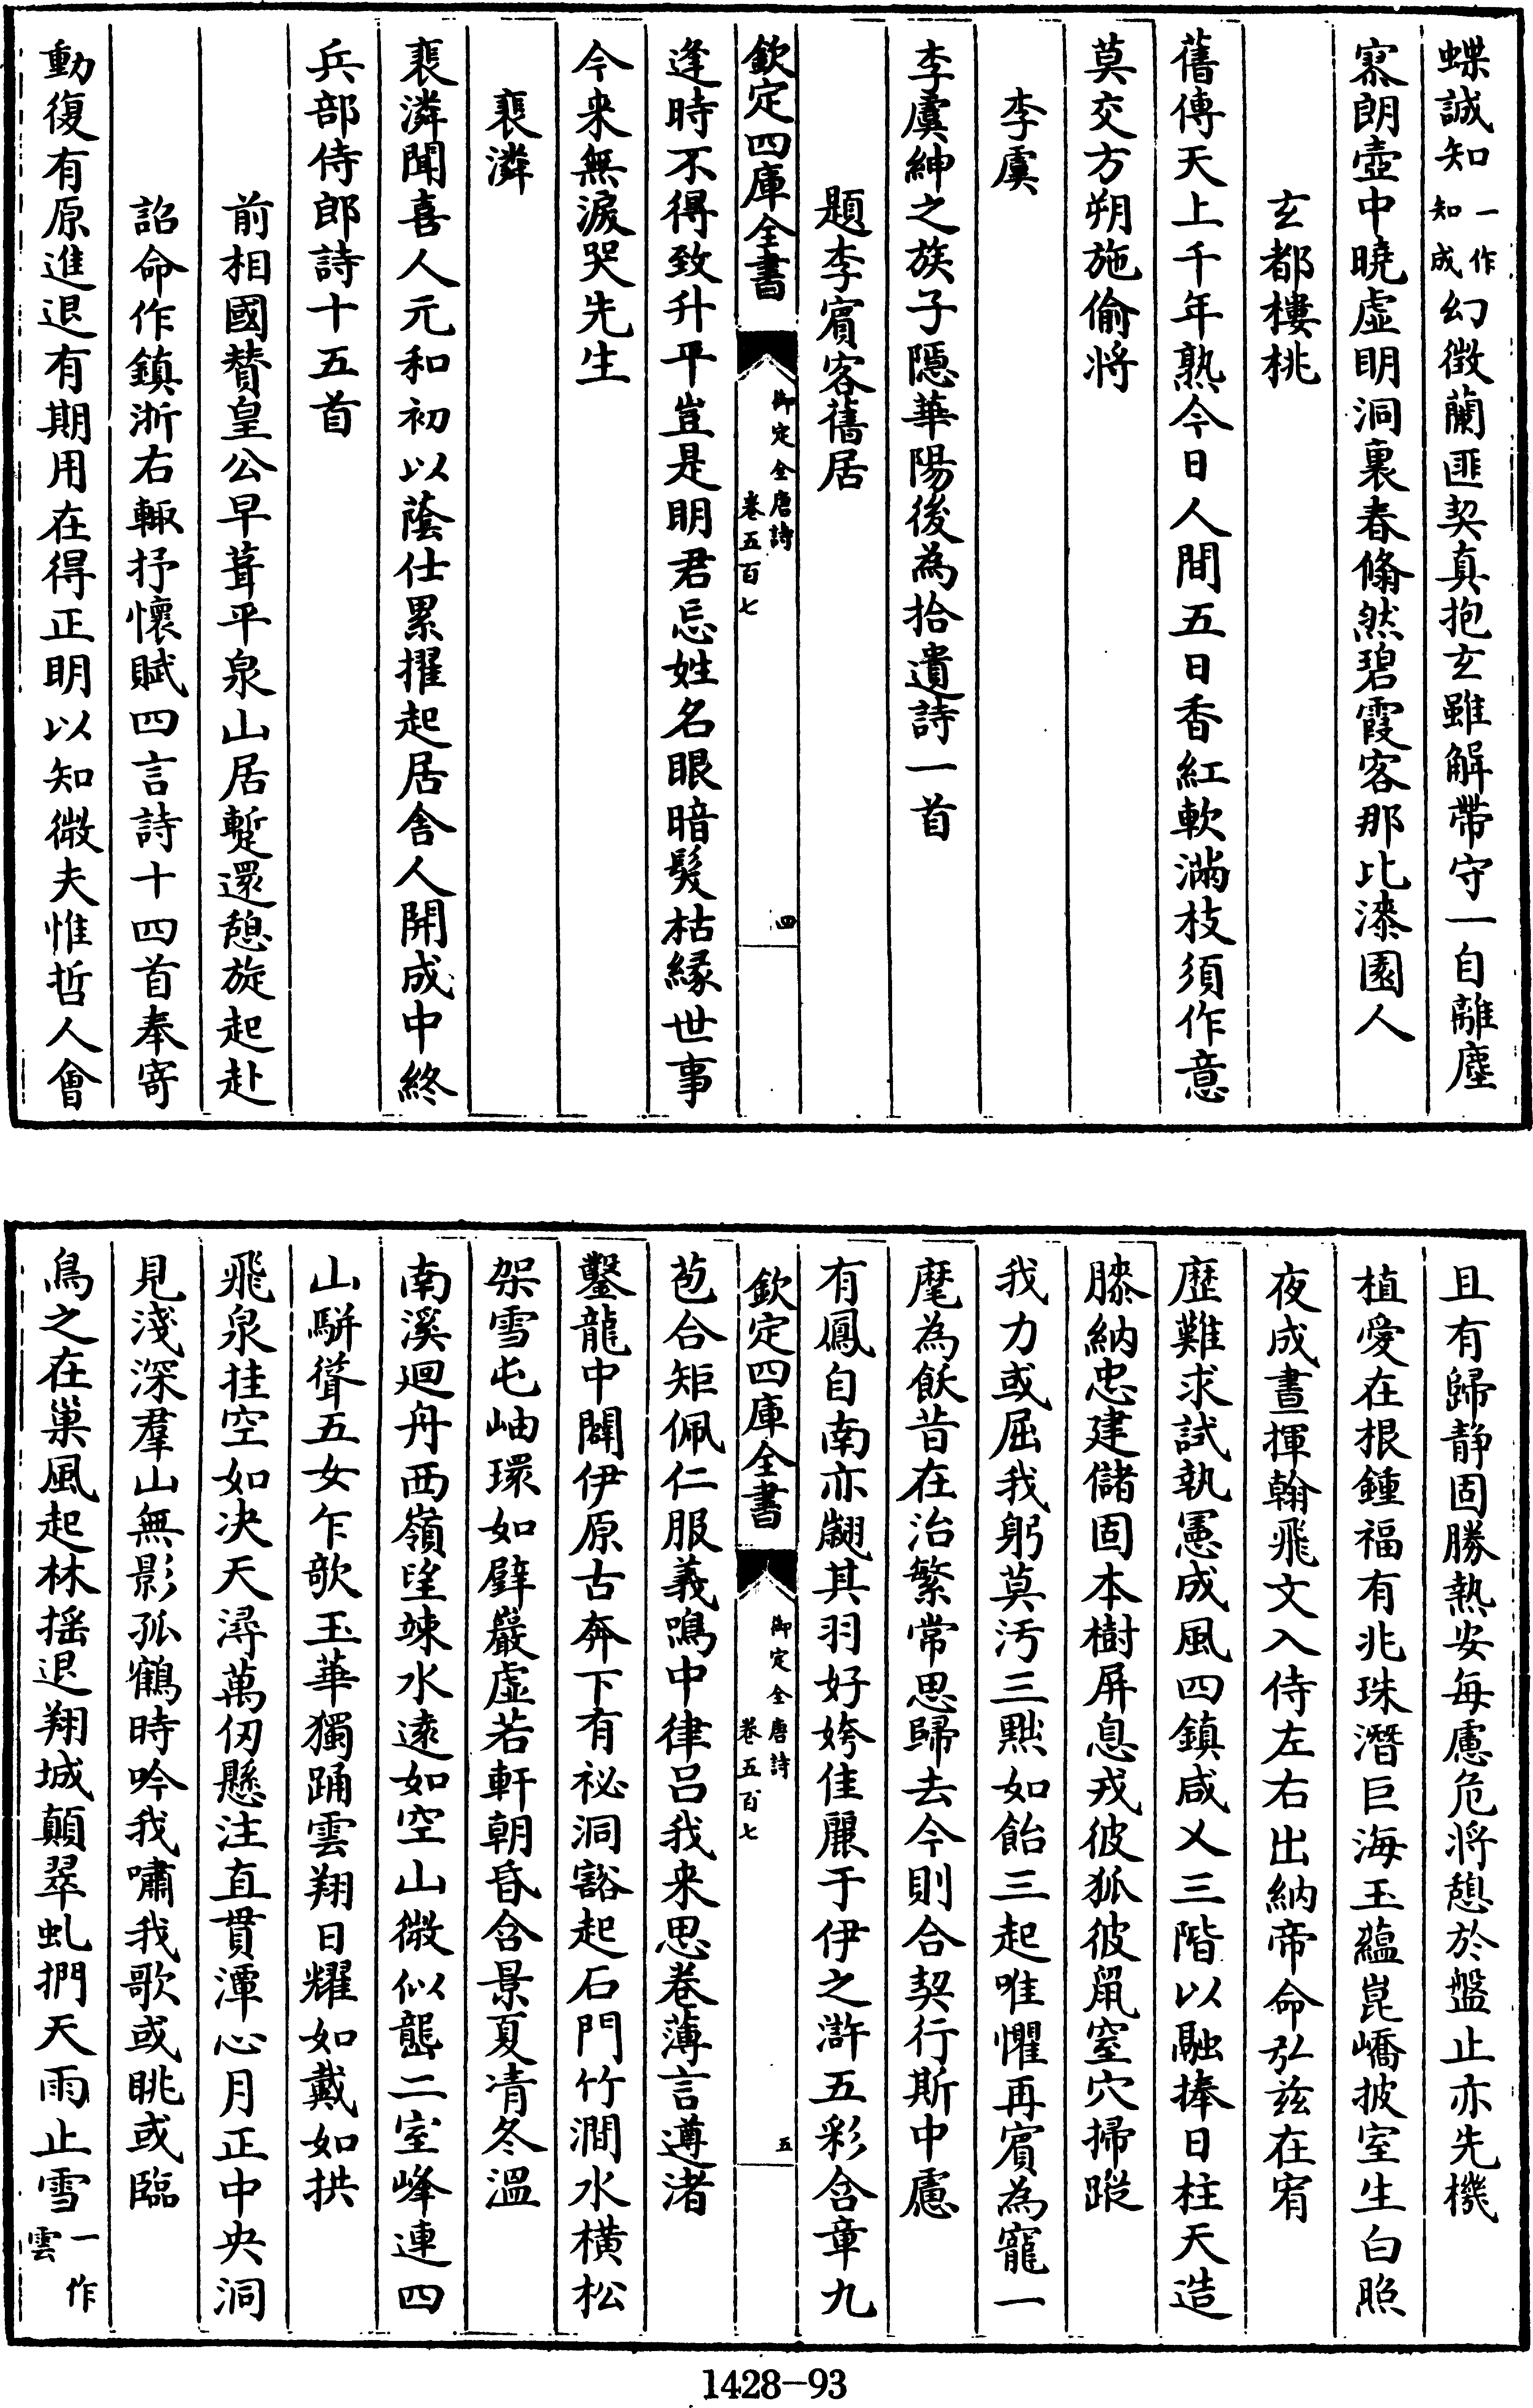 蝶誠知一作知成幻徵蘭匪契真抱玄雖解帶守一自離塵
寥朗壺中曉虛明洞裏春翛然碧霞客那比漆園人
玄都樓桃
舊傳天上千年熟今日人間五日香紅軟滿枝須作意
莫交方朔施偷將
李虞
李虞紳之族子隱華陽後為拾遺詩一首
題李賓客舊居
欽定四庫全書 御定全唐詩 卷五百七 四
逢時不得致升平豈是明君忌姓名眼暗髮枯緣世事
今来無淚哭先生
裴潾
裴潾聞喜人元和初以蔭仕累擢起居舍人開成中終
兵部侍郎詩十五首
前相國贊皇公早葺平泉山居蹔還憩旋起赴
詔命作鎮浙右輙抒懷賦四言詩十四首奉寄
動復有原進退有期用在得正明以知微夫惟哲人會
且有歸靜固勝熱安每慮危將憩於盤止亦先機
植愛在根鍾福有兆珠潛巨海玉蘊崑嶠披室生白照
夜成晝揮翰飛文入侍左右出納帝命弘兹在宥
歴難求試執憲成風四鎮咸乂三階以融捧日柱天造
膝納忠建儲固本樹屏息戎彼狐彼鼠窒穴掃蹤
我力或屈我躬莫汚三黜如飴三起唯懼再賓為寵一
麾為飫昔在治繁常思歸去今則合契行斯中慮
有鳳自南亦翽其羽好姱佳麗于伊之滸五彩含章九
欽定四庫全書 御定全唐詩 卷五百七 五
苞合矩佩仁服義鳴中律呂我来思卷薄言遵渚
鑿龍中闢伊原古奔下有祕洞豁起石門竹澗水橫松
架雪屯岫環如壁巖虛若軒朝昏含景夏凊冬溫
南溪迴舟西嶺望竦水遠如空山微似巃二室峰連四
山駢聳五女乍歌玉華獨踊雲翔日耀如戴如拱
飛泉挂空如决天潯萬仞懸注直貫潭心月正中央洞
見淺深羣山無影孤鶴時吟我嘯我歌或眺或臨
鳥之在巢風起林揺退翔城顛翠虬捫天雨止雪一作雲
1428-93